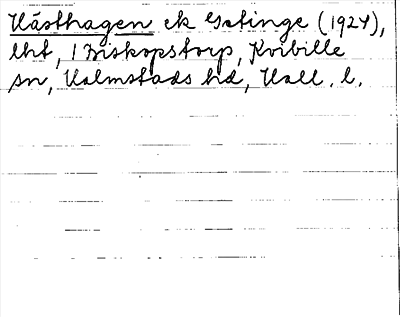 Hästhagen ek Getinge (1924),
lht, 1 Biskopstorp, Kvibille
sn, Halmstads hd, Hall. l.